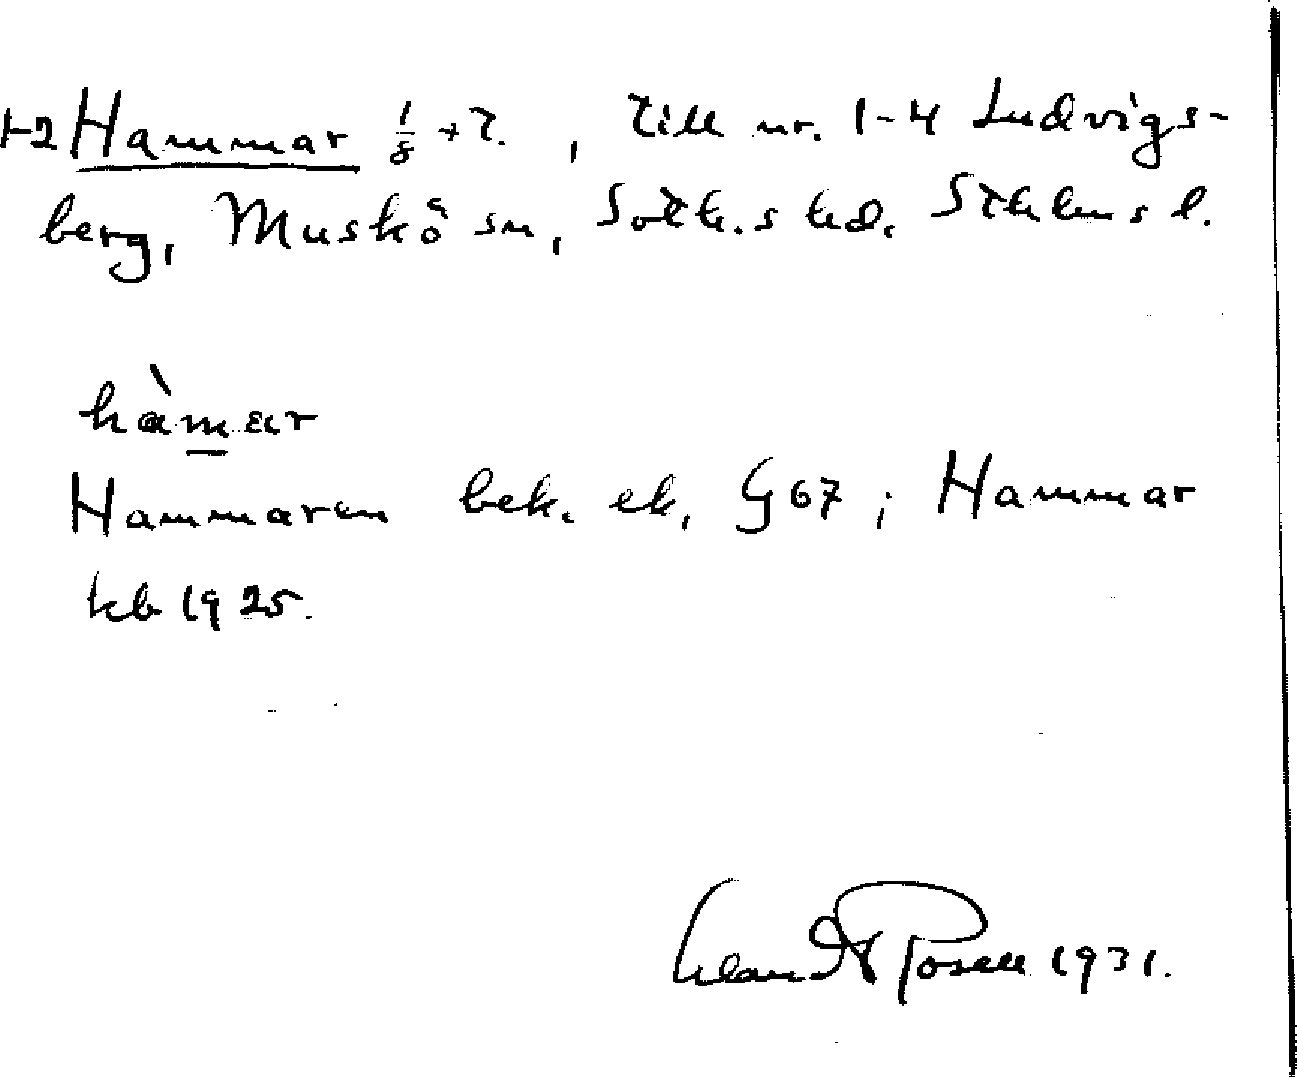 1-2 Hammar 1/8 + t., till nr. 1-4 Ludvigs-
berg, Muskö sn, Soth.s hd. Sthlms l.
hàmar
Hammaren bek. ek. G67; Hammar
kb 1925.
1931.